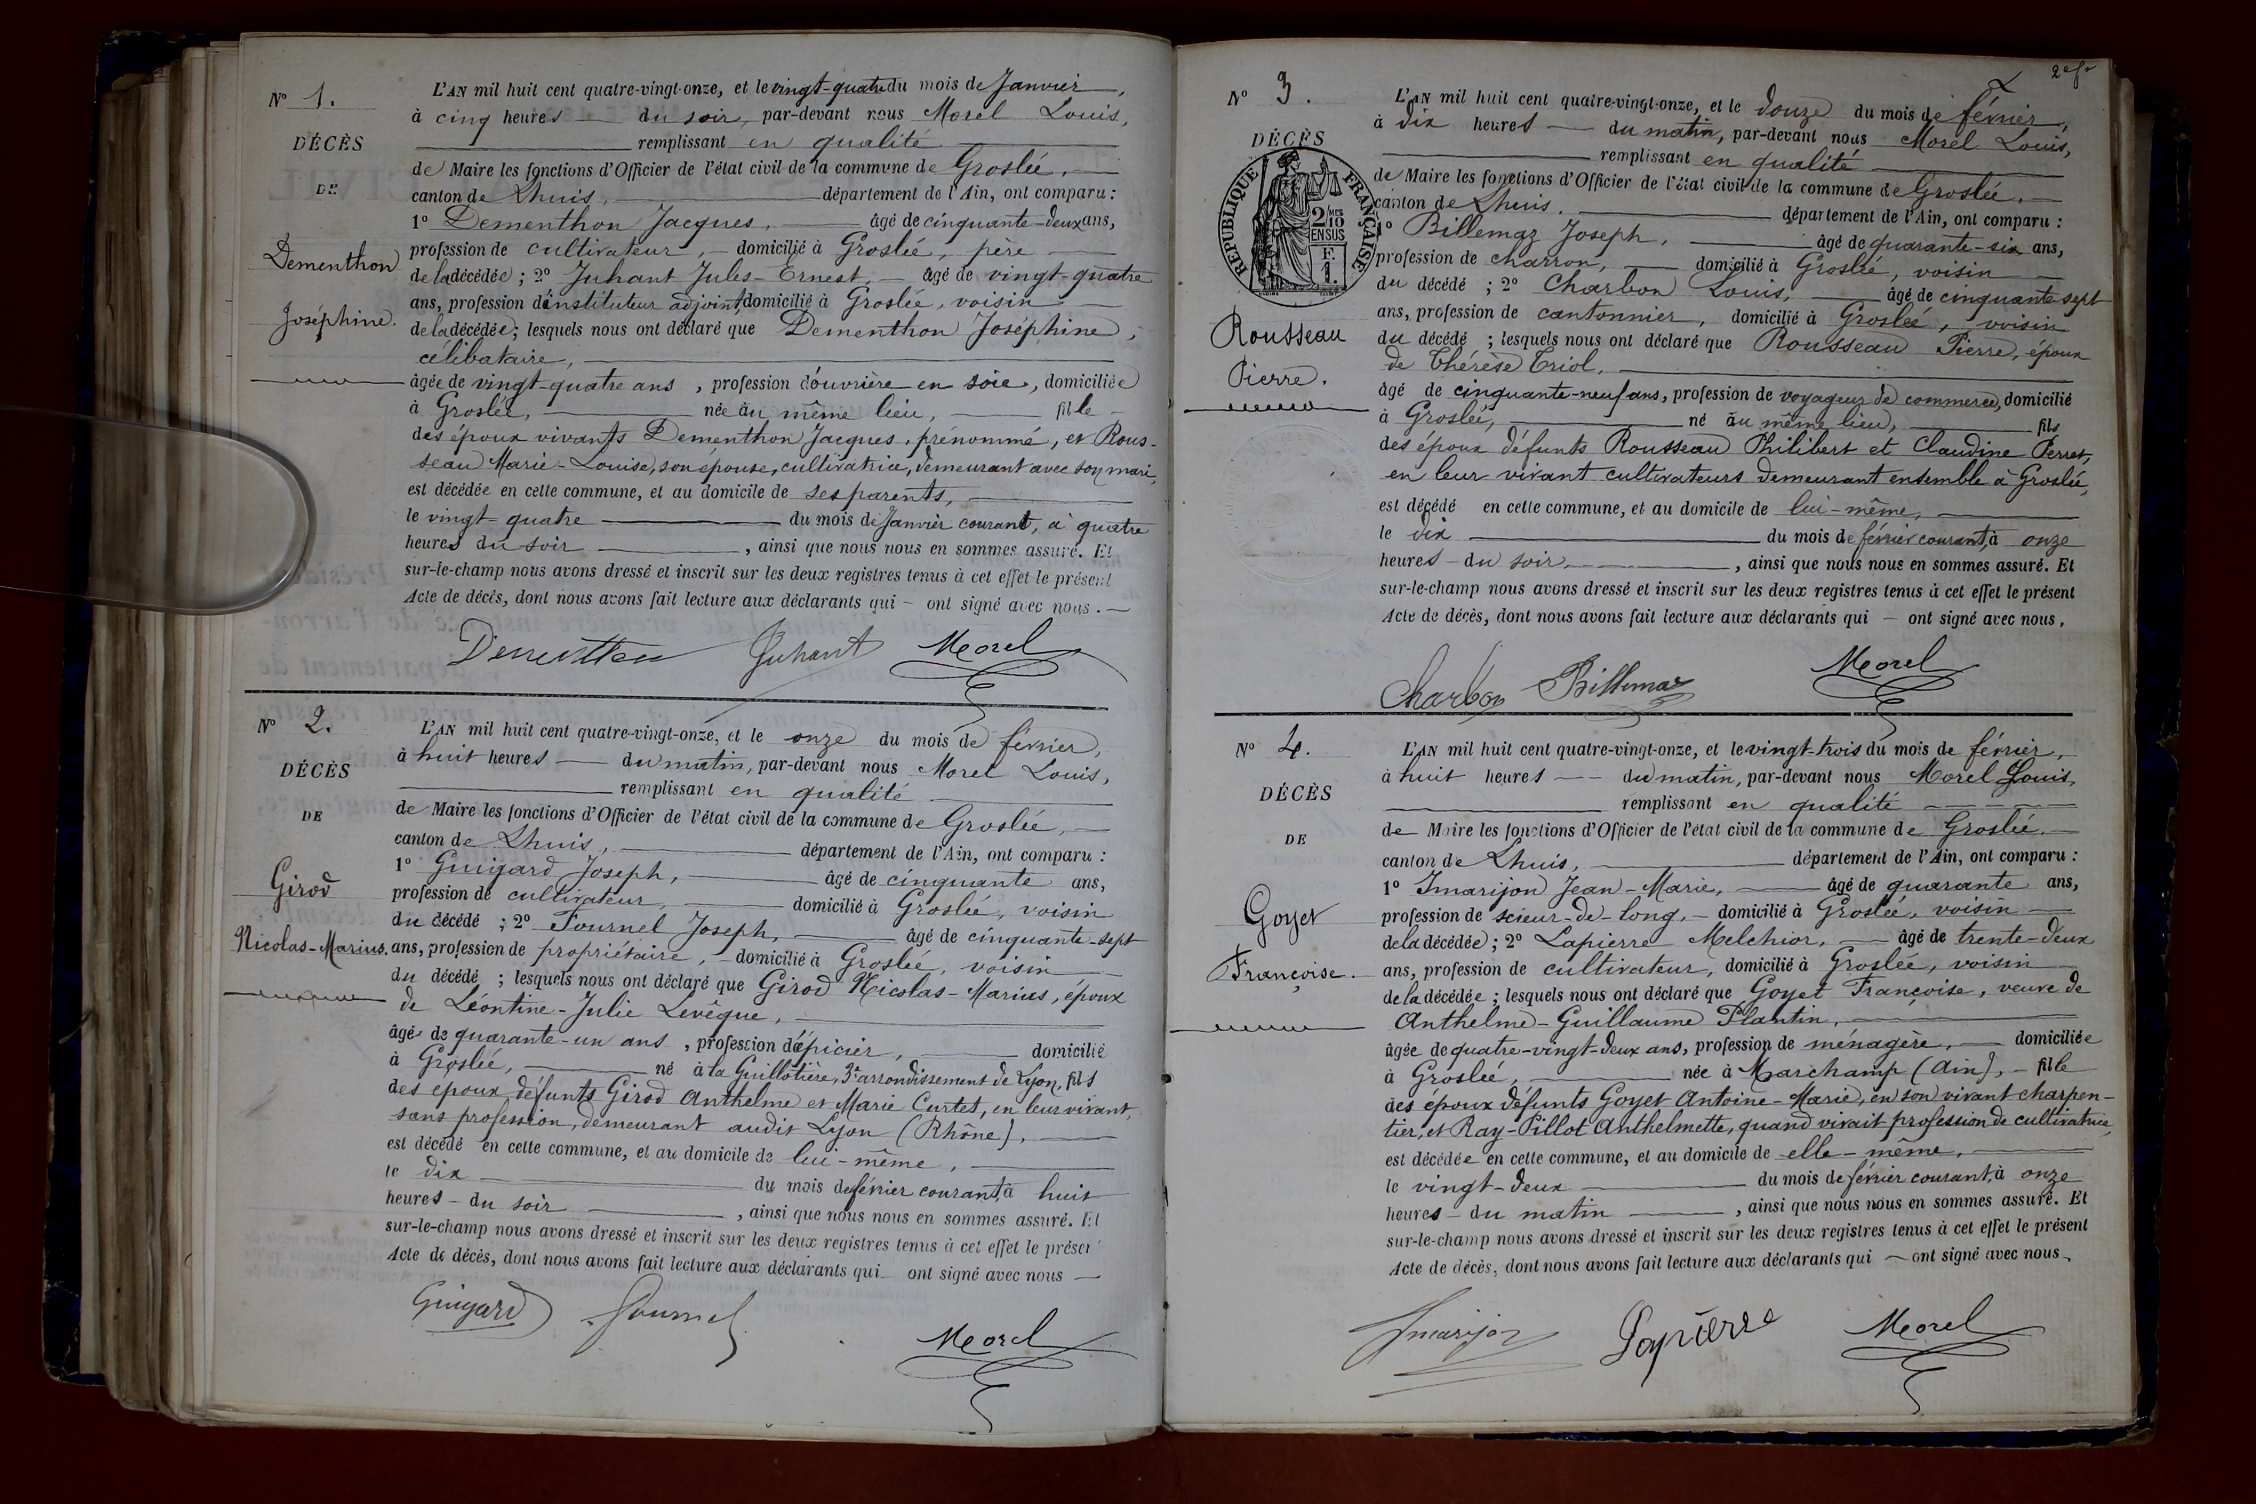 N° 1.
DÉCÈS
DE
Dementhon
Joséphine.
L'AN mil huit cent quatre-vingt-onze, et le vingt-quatre du mois de Janvier,
à cinq heures du soir, par-devant nous Morel Louis,
remplissant en qualité
de Maire les fonctions d'Officier de l'état civil de la commune de Groslée,
canton de Lhuis, département de l'Ain, ont comparu :
1° Dementhon Jacques, âgé de cinquante-deux ans,
profession de cultivateur, domicilié à Groslée, père
de la décédée ; 2° Juhant Jules-Ernest, âgé de vingt-quatre
ans, profession d'instituteur adjoint, domicilié à Groslée, voisin
de la décédée ; lesquels nous ont déclaré que Dementhon Joséphine,
célibataire,
âgée de vingt-quatre ans, profession d'ouvrière en soie, domiciliée
à Groslée, née au même lieu, fille
des époux vivants Dementhon Jacques, prénommé, et Rous-
seau Marie-Louise, son épouse, cultivatrice, demeurant avec son mari,
est décédée en cette commune, et au domicile de ses parents,
le vingt-quatre du mois de Janvier courant, à quatre
heures du soir, ainsi que nous nous en sommes assuré. Et
sur-le-champ nous avons dressé et inscrit sur les deux registres tenus à cet effet le présent
Acte de décès, dont nous avons fait lecture aux déclarants qui ont signé avec nous.
Dementhon Juhant Morel
N° 2.
DÉCÈS
DE
Girod
Nicolas-Marius.
L'AN mil huit cent quatre-vingt-onze, et le onze du mois de février,
à huit heures du matin, par-devant nous Morel Louis,
remplissant en qualité
de Maire les fonctions d'Officier de l'état civil de la commune de Groslée,
canton de Lhuis, département de l'Ain, ont comparu :
1° Guigard Joseph, âgé de cinquante ans,
profession de cultivateur, domicilié à Groslée, voisin
du décédé ; 2° Fournel Joseph, âgé de cinquante-sept
ans, profession de propriétaire, domicilié à Groslée, voisin
du décédé ; lesquels nous ont déclaré que Girod Nicolas-Marius, époux
de Léontine-Julie Levêque,
âgé de quarante-un ans, profession d'épicier, domicilié
à Groslée, né à la Guillotière, 3e arrondissement de Lyon, fils
des époux défunts Girod Anthelme et Marie Curtet, en leur vivant,
sans profession, demeurant audit Lyon (Rhône),
est décédé en cette commune, et au domicile de lui-même,
le dix du mois de février courant, à huit
heures du soir, ainsi que nous nous en sommes assuré. Et
sur-le-champ nous avons dressé et inscrit sur les deux registres tenus à cet effet le présent
Acte de décès, dont nous avons fait lecture aux déclarants qui ont signé avec nous
Guigard Fournel Morel
2e fo
N° 3.
DÉCÈS
RÉPUBLIQUE FRANÇAISE
2 MES
10
EN SUS
F.
1.
Rousseau
Pierre.
L'AN mil huit cent quatre-vingt-onze, et le douze du mois de février,
à dix heures du matin, par-devant nous Morel Louis,
remplissant en qualité
de Maire les fonctions d'Officier de l'état civil de la commune de Groslée,
canton de Lhuis, département de l'Ain, ont comparu :
1° Billemaz Joseph, âgé de quarante-six ans,
profession de charron, domicilié à Groslée, voisin
du décédé ; 2° Charbon Louis, âgé de cinquante-sept
ans, profession de cantonnier, domicilié à Groslée, voisin
du décédé ; lesquels nous ont déclaré que Rousseau Pierre, époux
de Thérèse Triol,
âgé de cinquante-neuf ans, profession de voyageur de commerce, domicilié
à Groslée, né au même lieu, fils
des époux défunts Rousseau Philibert et Claudine Perret,
en leur vivant cultivateurs demeurant ensemble à Groslée,
est décédé en cette commune, et au domicile de lui-même,
le dix du mois de février courant, à onze
heures du soir, ainsi que nous nous en sommes assuré. Et
sur-le-champ nous avons dressé et inscrit sur les deux registres tenus à cet effet le présent
Acte de décès, dont nous avons fait lecture aux déclarants qui ont signé avec nous.
Charbon Billemaz Morel
N° 4.
DÉCÈS
DE
Goyet
Françoise.
L'AN mil huit cent quatre-vingt-onze, et le vingt-trois du mois de février,
à huit heures du matin, par-devant nous Morel Louis,
remplissant en qualité
de Maire les fonctions d'Officier de l'état civil de la commune de Groslée,
canton de Lhuis, département de l'Ain, ont comparu :
1° Jmarijon Jean-Marie, âgé de quarante ans,
profession de scieur-de-long, domicilié à Groslée, voisin
de la décédée ; 2° Lapierre Melchior, âgé de trente-deux
ans, profession de cultivateur, domicilié à Groslée, voisin
de la décédée ; lesquels nous ont déclaré que Goyet Françoise, veuve de
Anthelme-Guillaume Plantin,
âgée de quatre-vingt-deux ans, profession de ménagère, domiciliée
à Groslée, née à Marchamp (Ain), fille
des époux défunts Goyet Antoine-Marie, en son vivant charpen-
tier, et Ray-Pillot Anthelmette, quand vivait profession de cultivatrice,
est décédée en cette commune, et au domicile de elle-même,
le vingt-deux du mois de février courant, à onze
heures du matin, ainsi que nous nous en sommes assuré. Et
sur-le-champ nous avons dressé et inscrit sur les deux registres tenus à cet effet le présent
Acte de décès, dont nous avons fait lecture aux déclarants qui ont signé avec nous.
Jmarijon Lapierre Morel